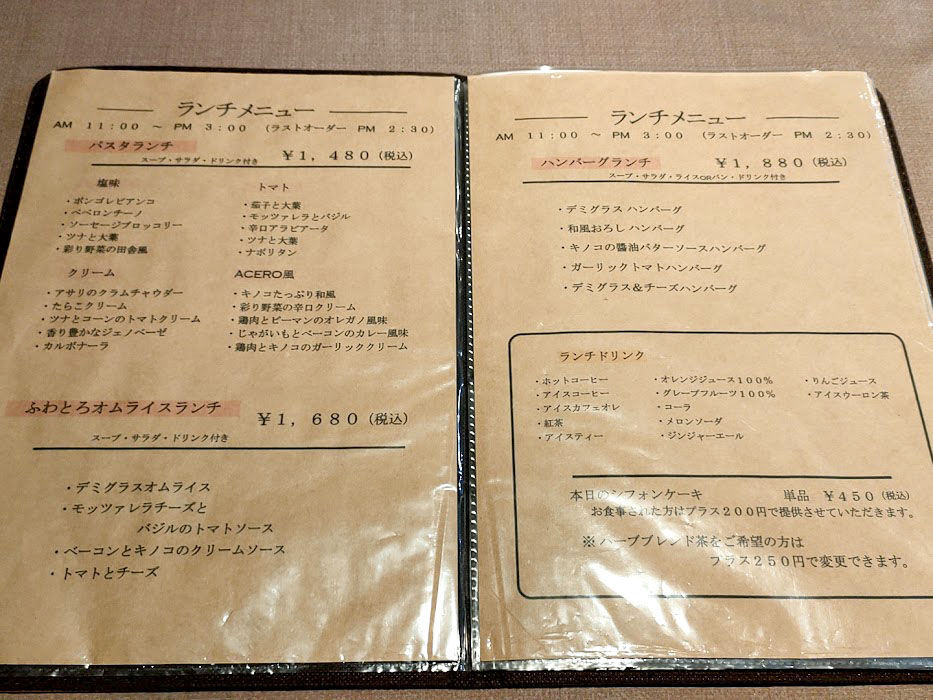 ランチメニュー
AM 11:00 ～ PM 3:00 (ラストオーダー PM 2:30)
パスタランチ ￥1,480(税込)
スープ・サラダ・ドリンク付き
塩味
・ボンゴレビアンコ
・ペペロンチーノ
・ソーセージブロッコリー
・ツナと大葉
・彩り野菜の田舎風
トマト
・茄子と大葉
・モッツァレラとバジル
・辛口アラビアータ
・ツナと大葉
・ナポリタン
クリーム
・アサリのクラムチャウダー
・たらこクリーム
・ツナとコーンのトマトクリーム
・香り豊かなジェノベーゼ
・カルボナーラ
ACERO風
・キノコたっぷり和風
・彩り野菜の辛口クリーム
・鶏肉とピーマンのオレガノ風味
・じゃがいもとベーコンのカレー風味
・鶏肉とキノコのガーリッククリーム
ふわとろオムライスランチ ￥1,680(税込)
スープ・サラダ・ドリンク付き
・デミグラスオムライス
・モッツァレラチーズと
バジルのトマトソース
・ベーコンとキノコのクリームソース
・トマトとチーズ
ランチメニュー
AM 11:00 ～ PM 3:00 (ラストオーダー PM 2:30)
ハンバーグランチ ￥1,880(税込)
スープ・サラダ・ライスORパン・ドリンク付き
・デミグラス ハンバーグ
・和風おろし ハンバーグ
・キノコの醬油バターソースハンバーグ
・ガーリックトマトハンバーグ
・デミグラス＆チーズハンバーグ
ランチドリンク
・ホットコーヒー
・アイスコーヒー
・アイスカフェオレ
・紅茶
・アイスティー
・オレンジジュース100%
・グレープフルーツ100%
・コーラ
・メロンソーダ
・ジンジャーエール
・りんごジュース
・アイスウーロン茶
本日のシフォンケーキ 単品 ￥450(税込)
お食事された方はプラス200円で提供させていただきます。
※ハーブブレンド茶をご希望の方は
プラス250円で変更できます。